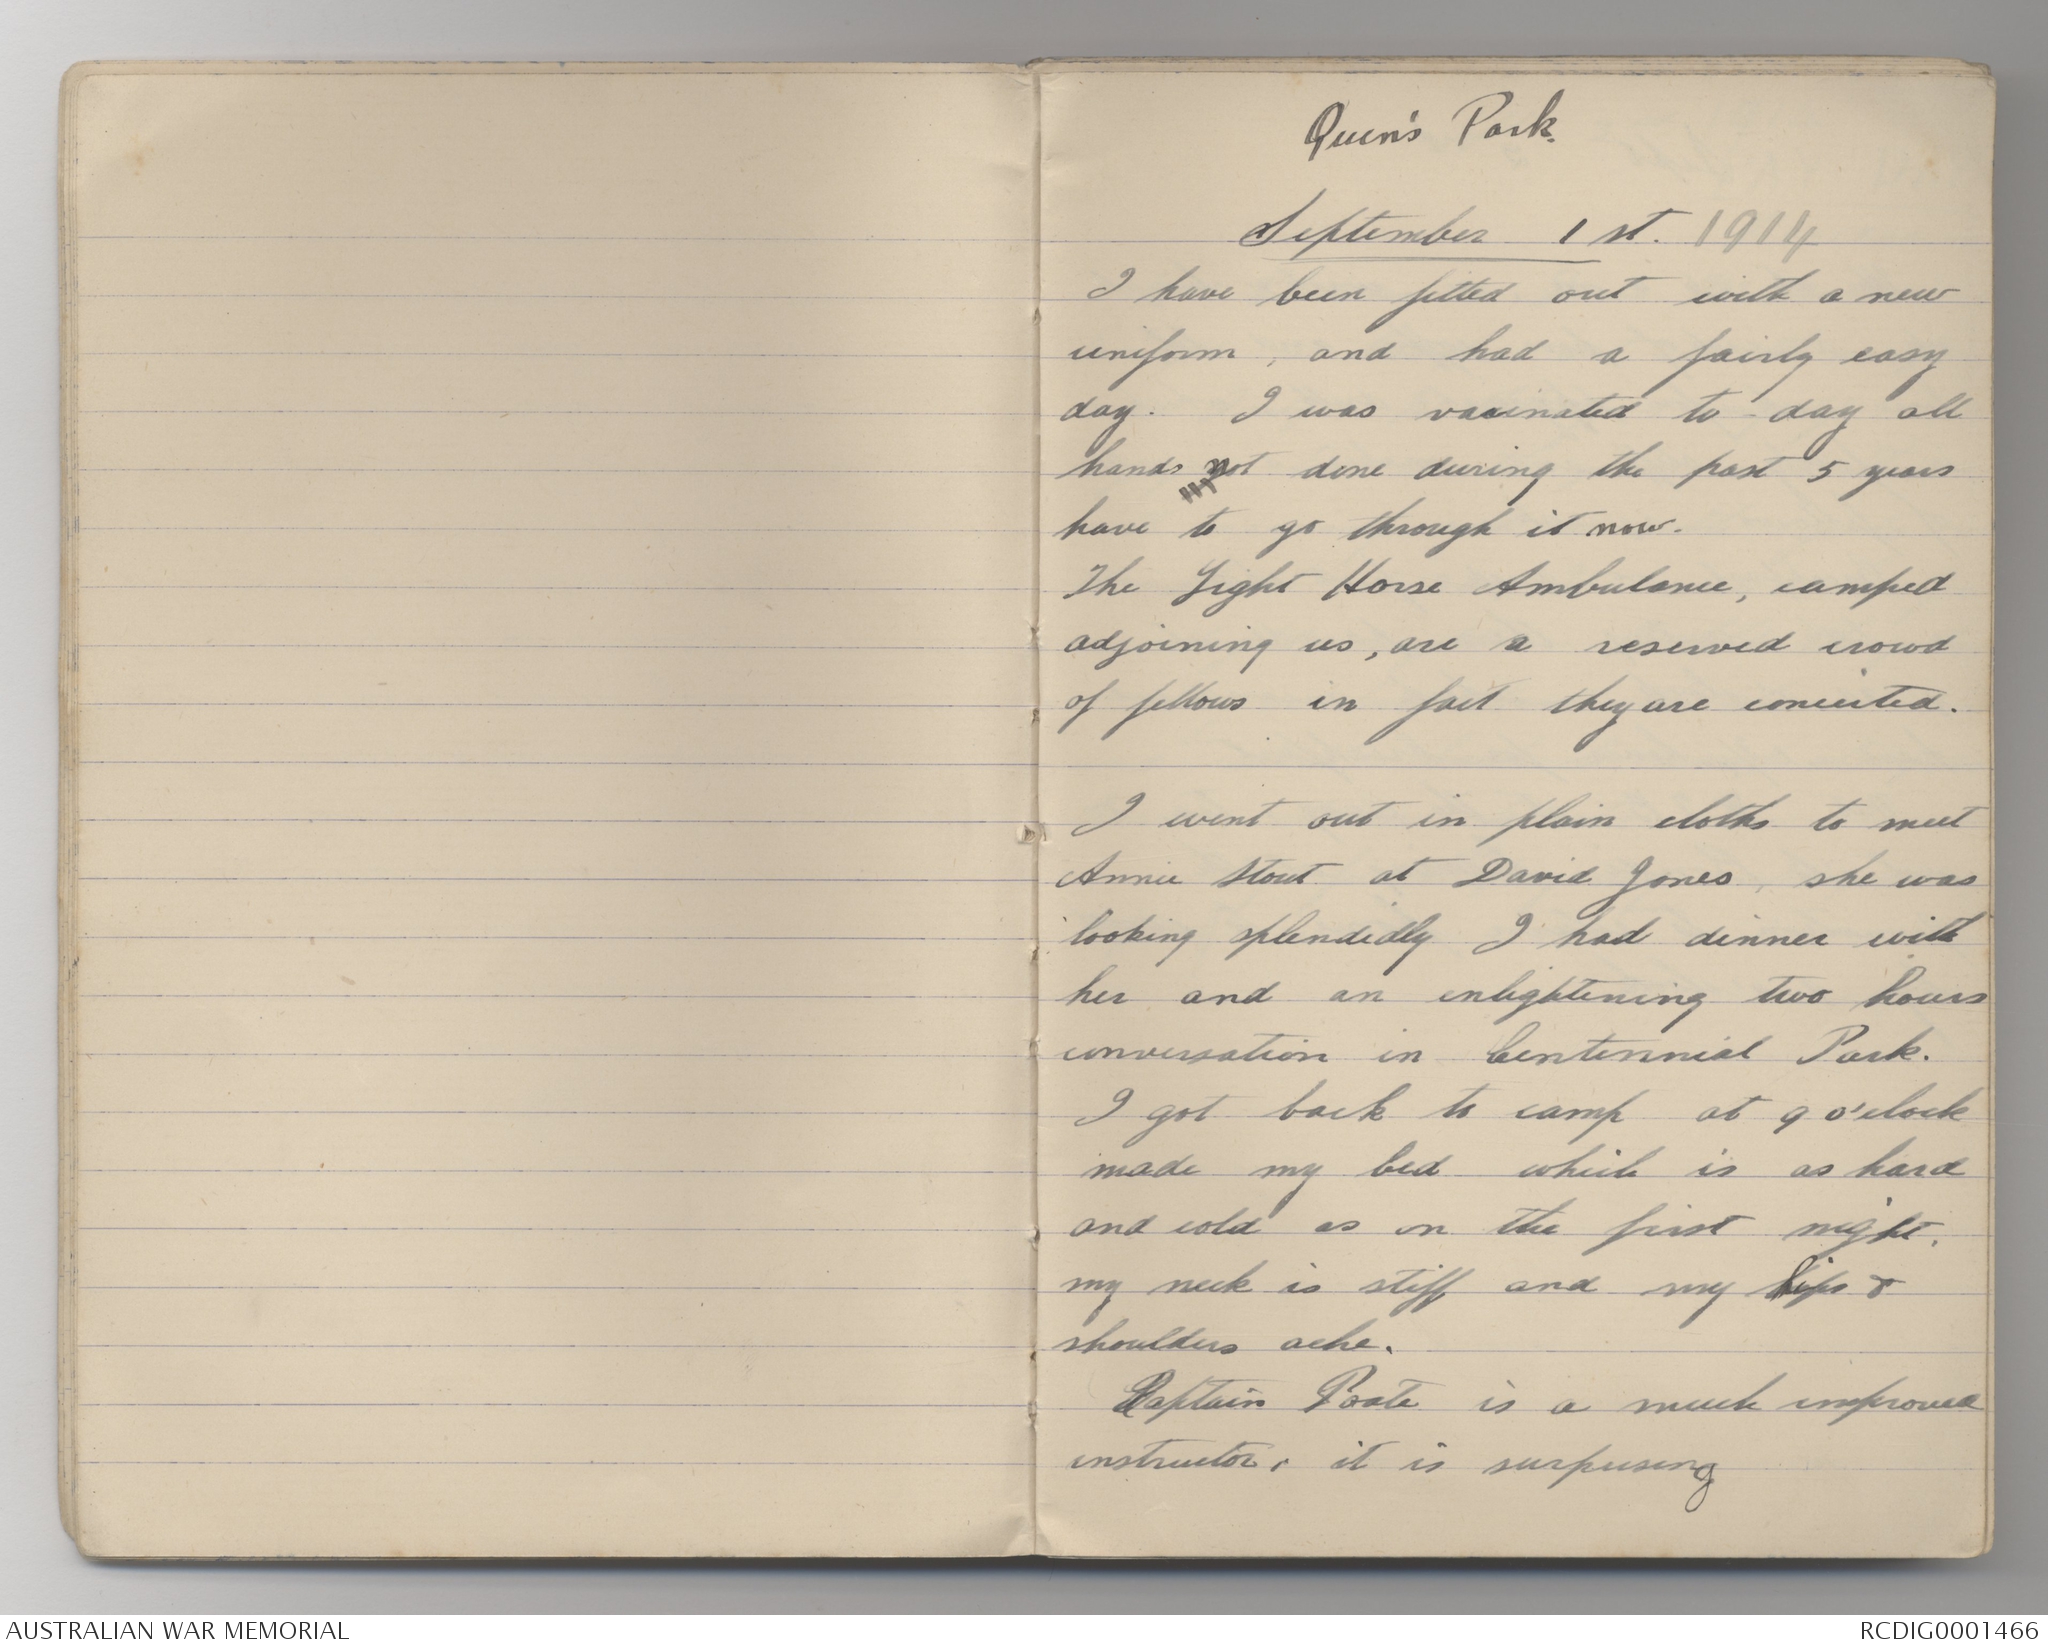 Queen's Park.
September 1st. 1914
I have been fitted out with a new
uniform, and had a fairly easy
day. I was vacinated to-day all
hands not done during the past 5 years
have to go through it now.
The Light Horse Ambulance, camped
adjoining us, are a reserved crowd
of fellows in fact they are conceited.
I went out in plain cloths to meet
Annie Stout at David Jones, she was
looking splendidly I had dinner with
her and an enlightening two hours
conversation in Centennial Park.
I got back to camp at 9 o'clock
made my bed which is as hard
and cold as on the first night,
my neck is stiff and my hips &
shoulders ache.
Captain Poate is a much improved
instructor, it is surprising
AUSTRALIAN WAR MEMORIAL
RCDIG0001466